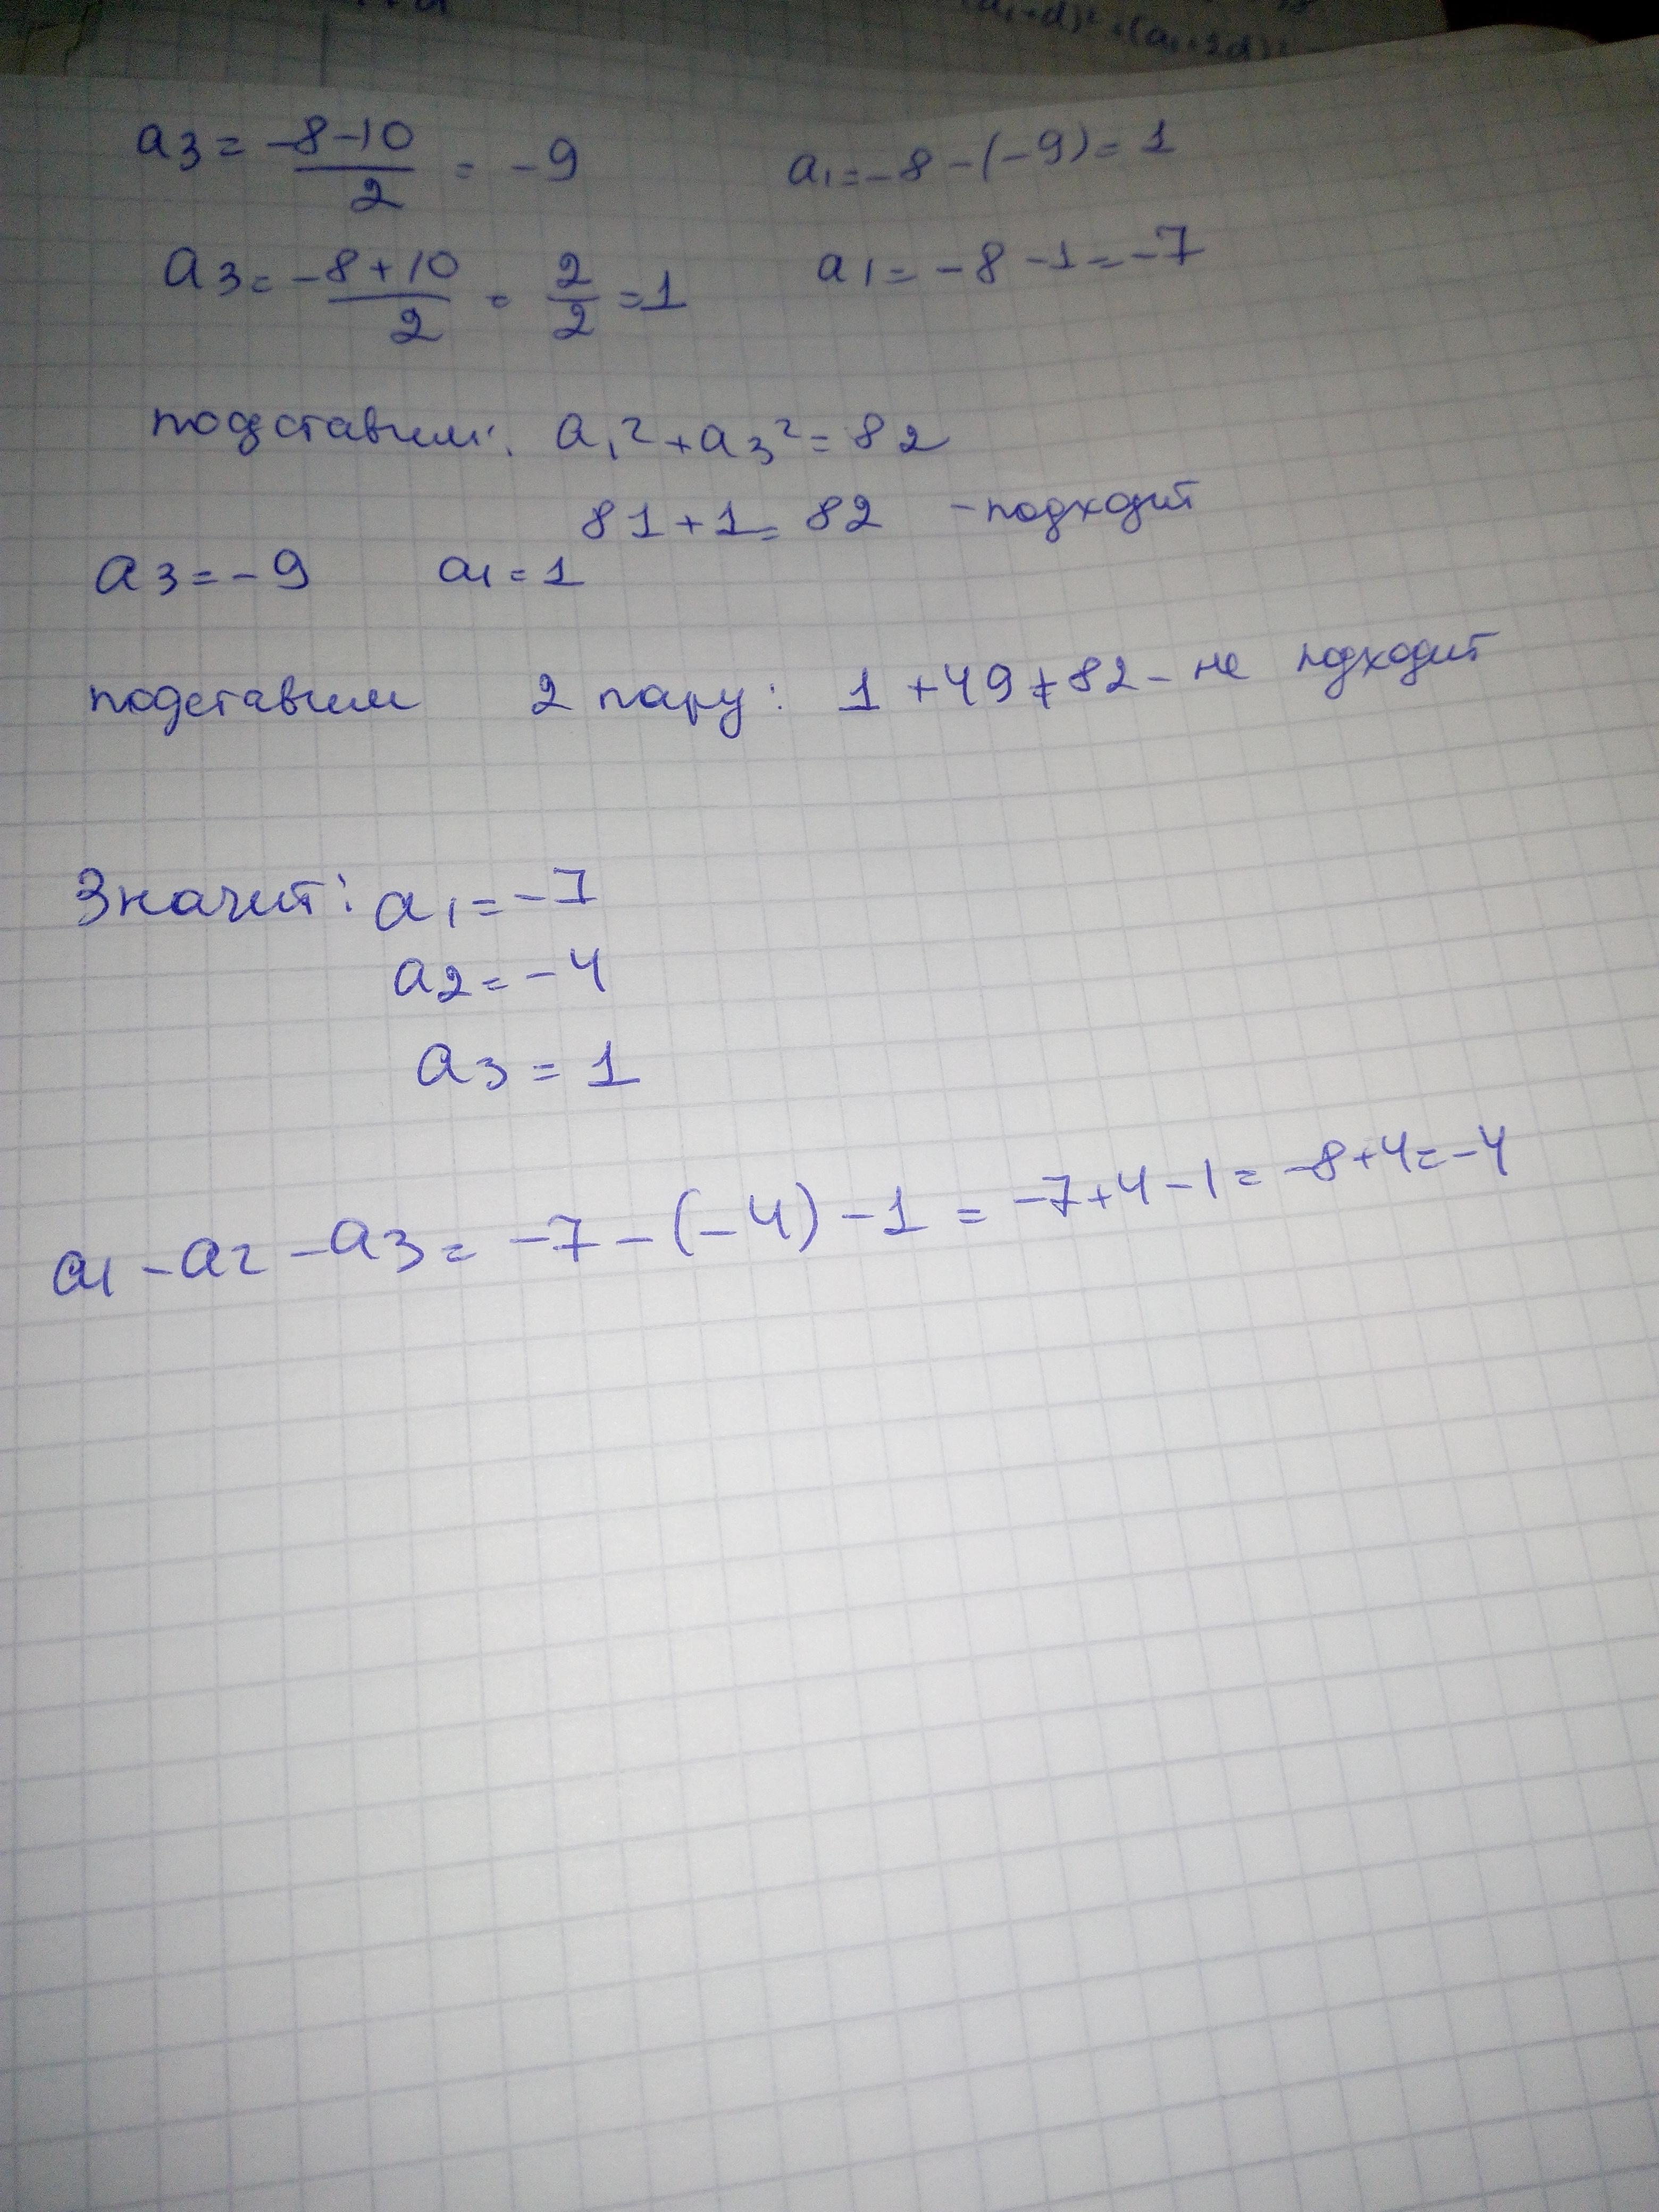 a₃ = (-8-10)/2 = -9 a₁ = -8-(-9) = 1
a₃ = (-8+10)/2 = 2/2 = 1 a₁ = -8-1 = -7
подставим: a₁² + a₃² = 82
81+1 = 82 - подходит
a₃ = -9 a₁ = 1
подставим 2 пару: 1+49≠82 - не подходит
Значит: a₁ = -7
a₂ = -4
a₃ = 1
a₁ - a₂ - a₃ = -7-(-4)-1 = -7+4-1 = -8+4 = -4